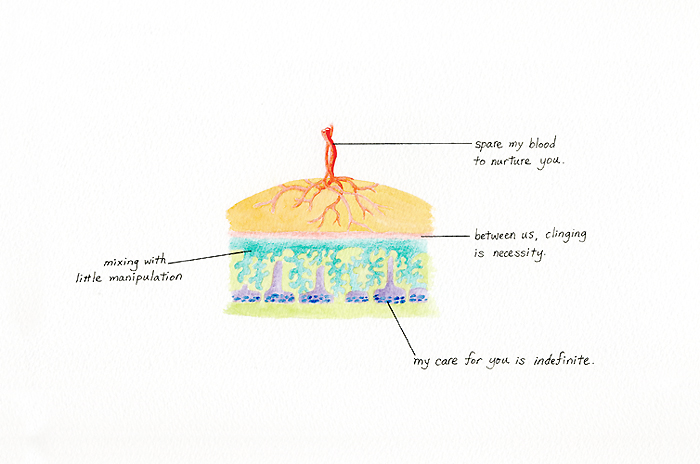 spare my blood
to nurture you.
between us, clinging
is necessity.
mixing with
little manipulation
my care for you is indefinite.